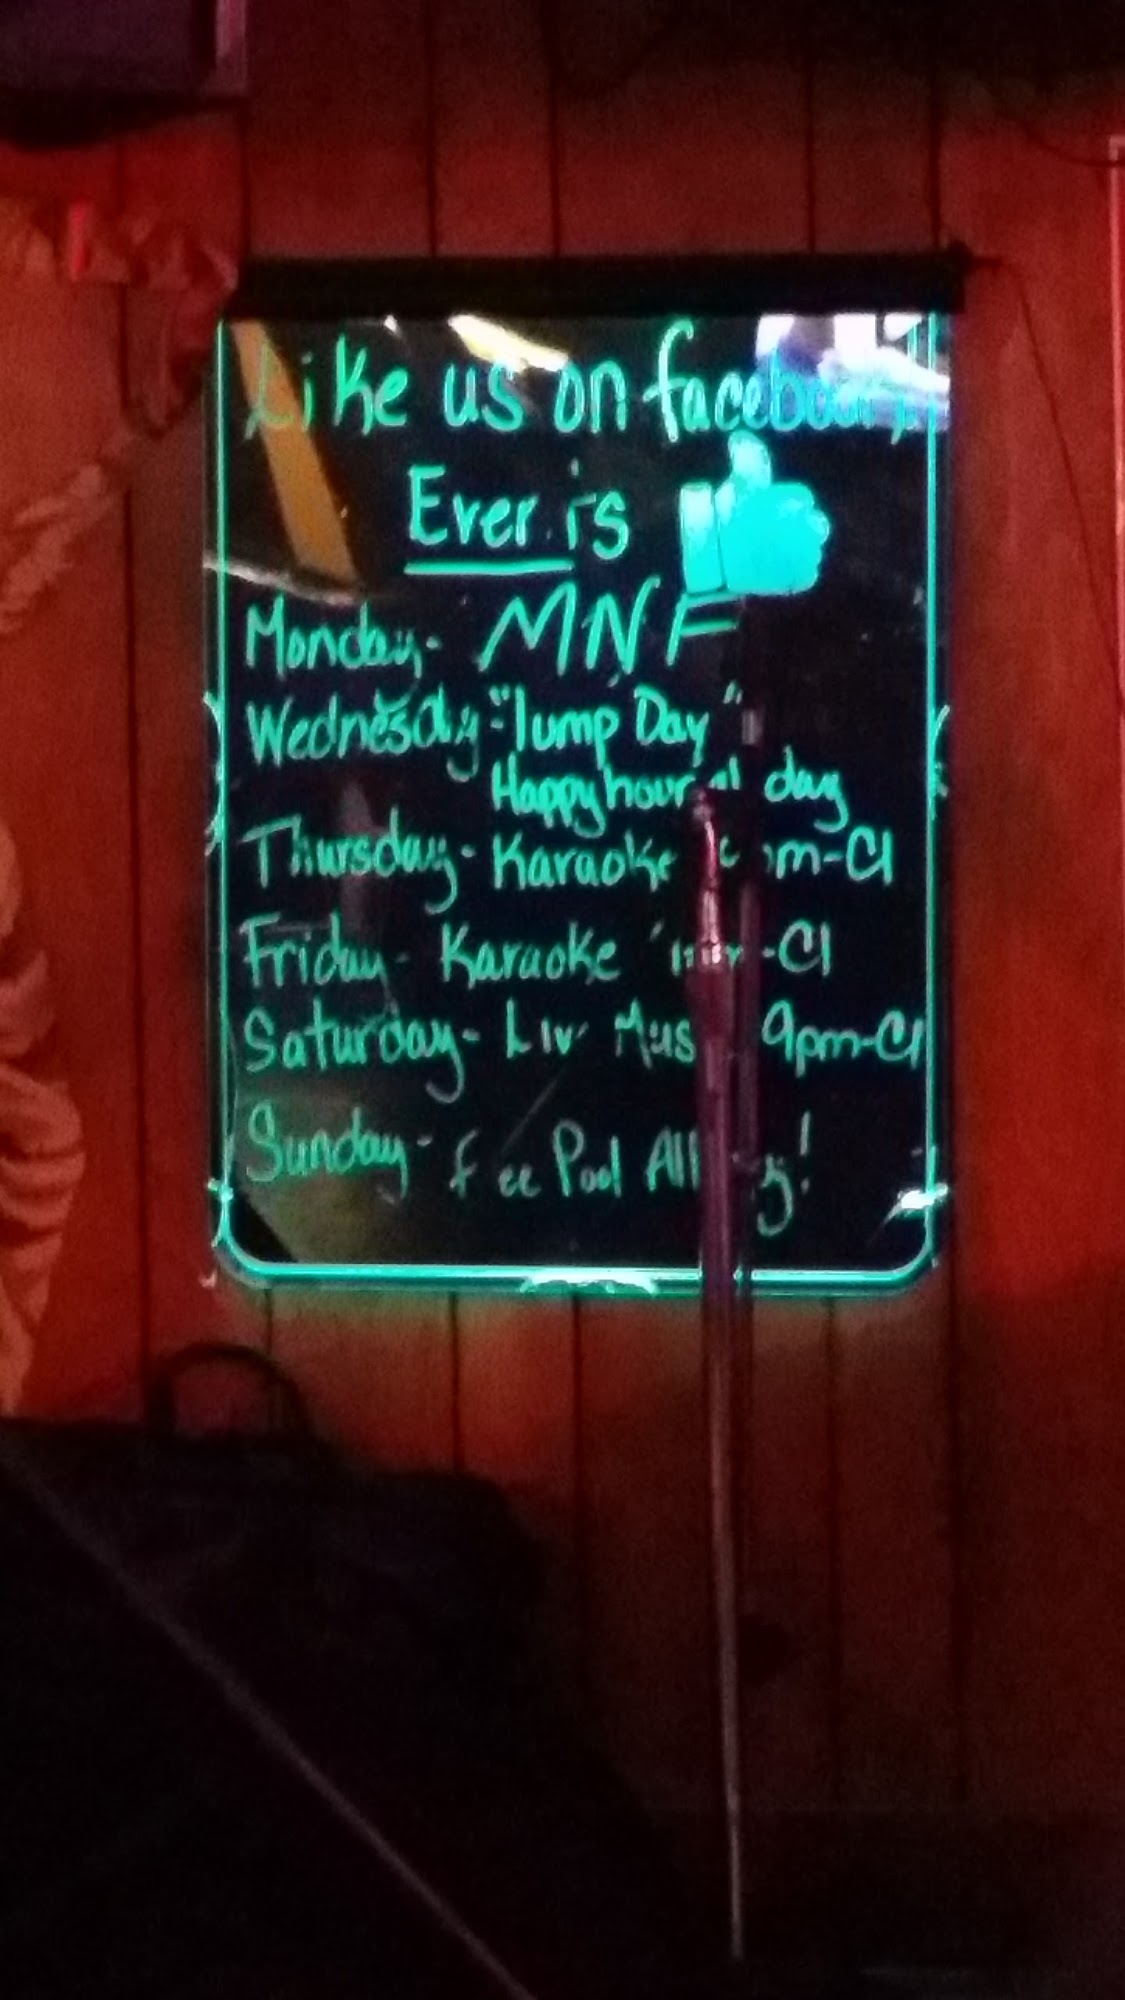 Like us on facebook!
Ever is
Monday- MNF
Wednesday- "Hump Day"
Happy hour all day
Thursday- Karaoke pm-Cl
Friday- Karaoke -Cl
Saturday- Live Music 9pm-Cl
Sunday- free Pool All Day!